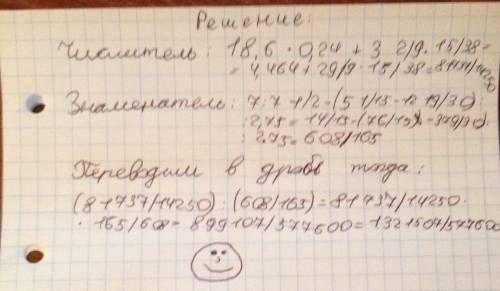 Решение:
Числитель: 18,6 · 0,24 + 3 2/9 · 15/38 =
= 4,464 + 29/9 · 15/38 = 81737/14250
Знаменатель: 7:7 1/2 - (5 1/15 - 12 19/30):
:2,75 = 14/15 - (76/15) - 379/30):
:2,75 = 608/165
Переводим в дробь тогда:
(81737/14250) : (608/165) = 81737/14250 ·
· 165/608 = 899107/577600 = 1321507/577600